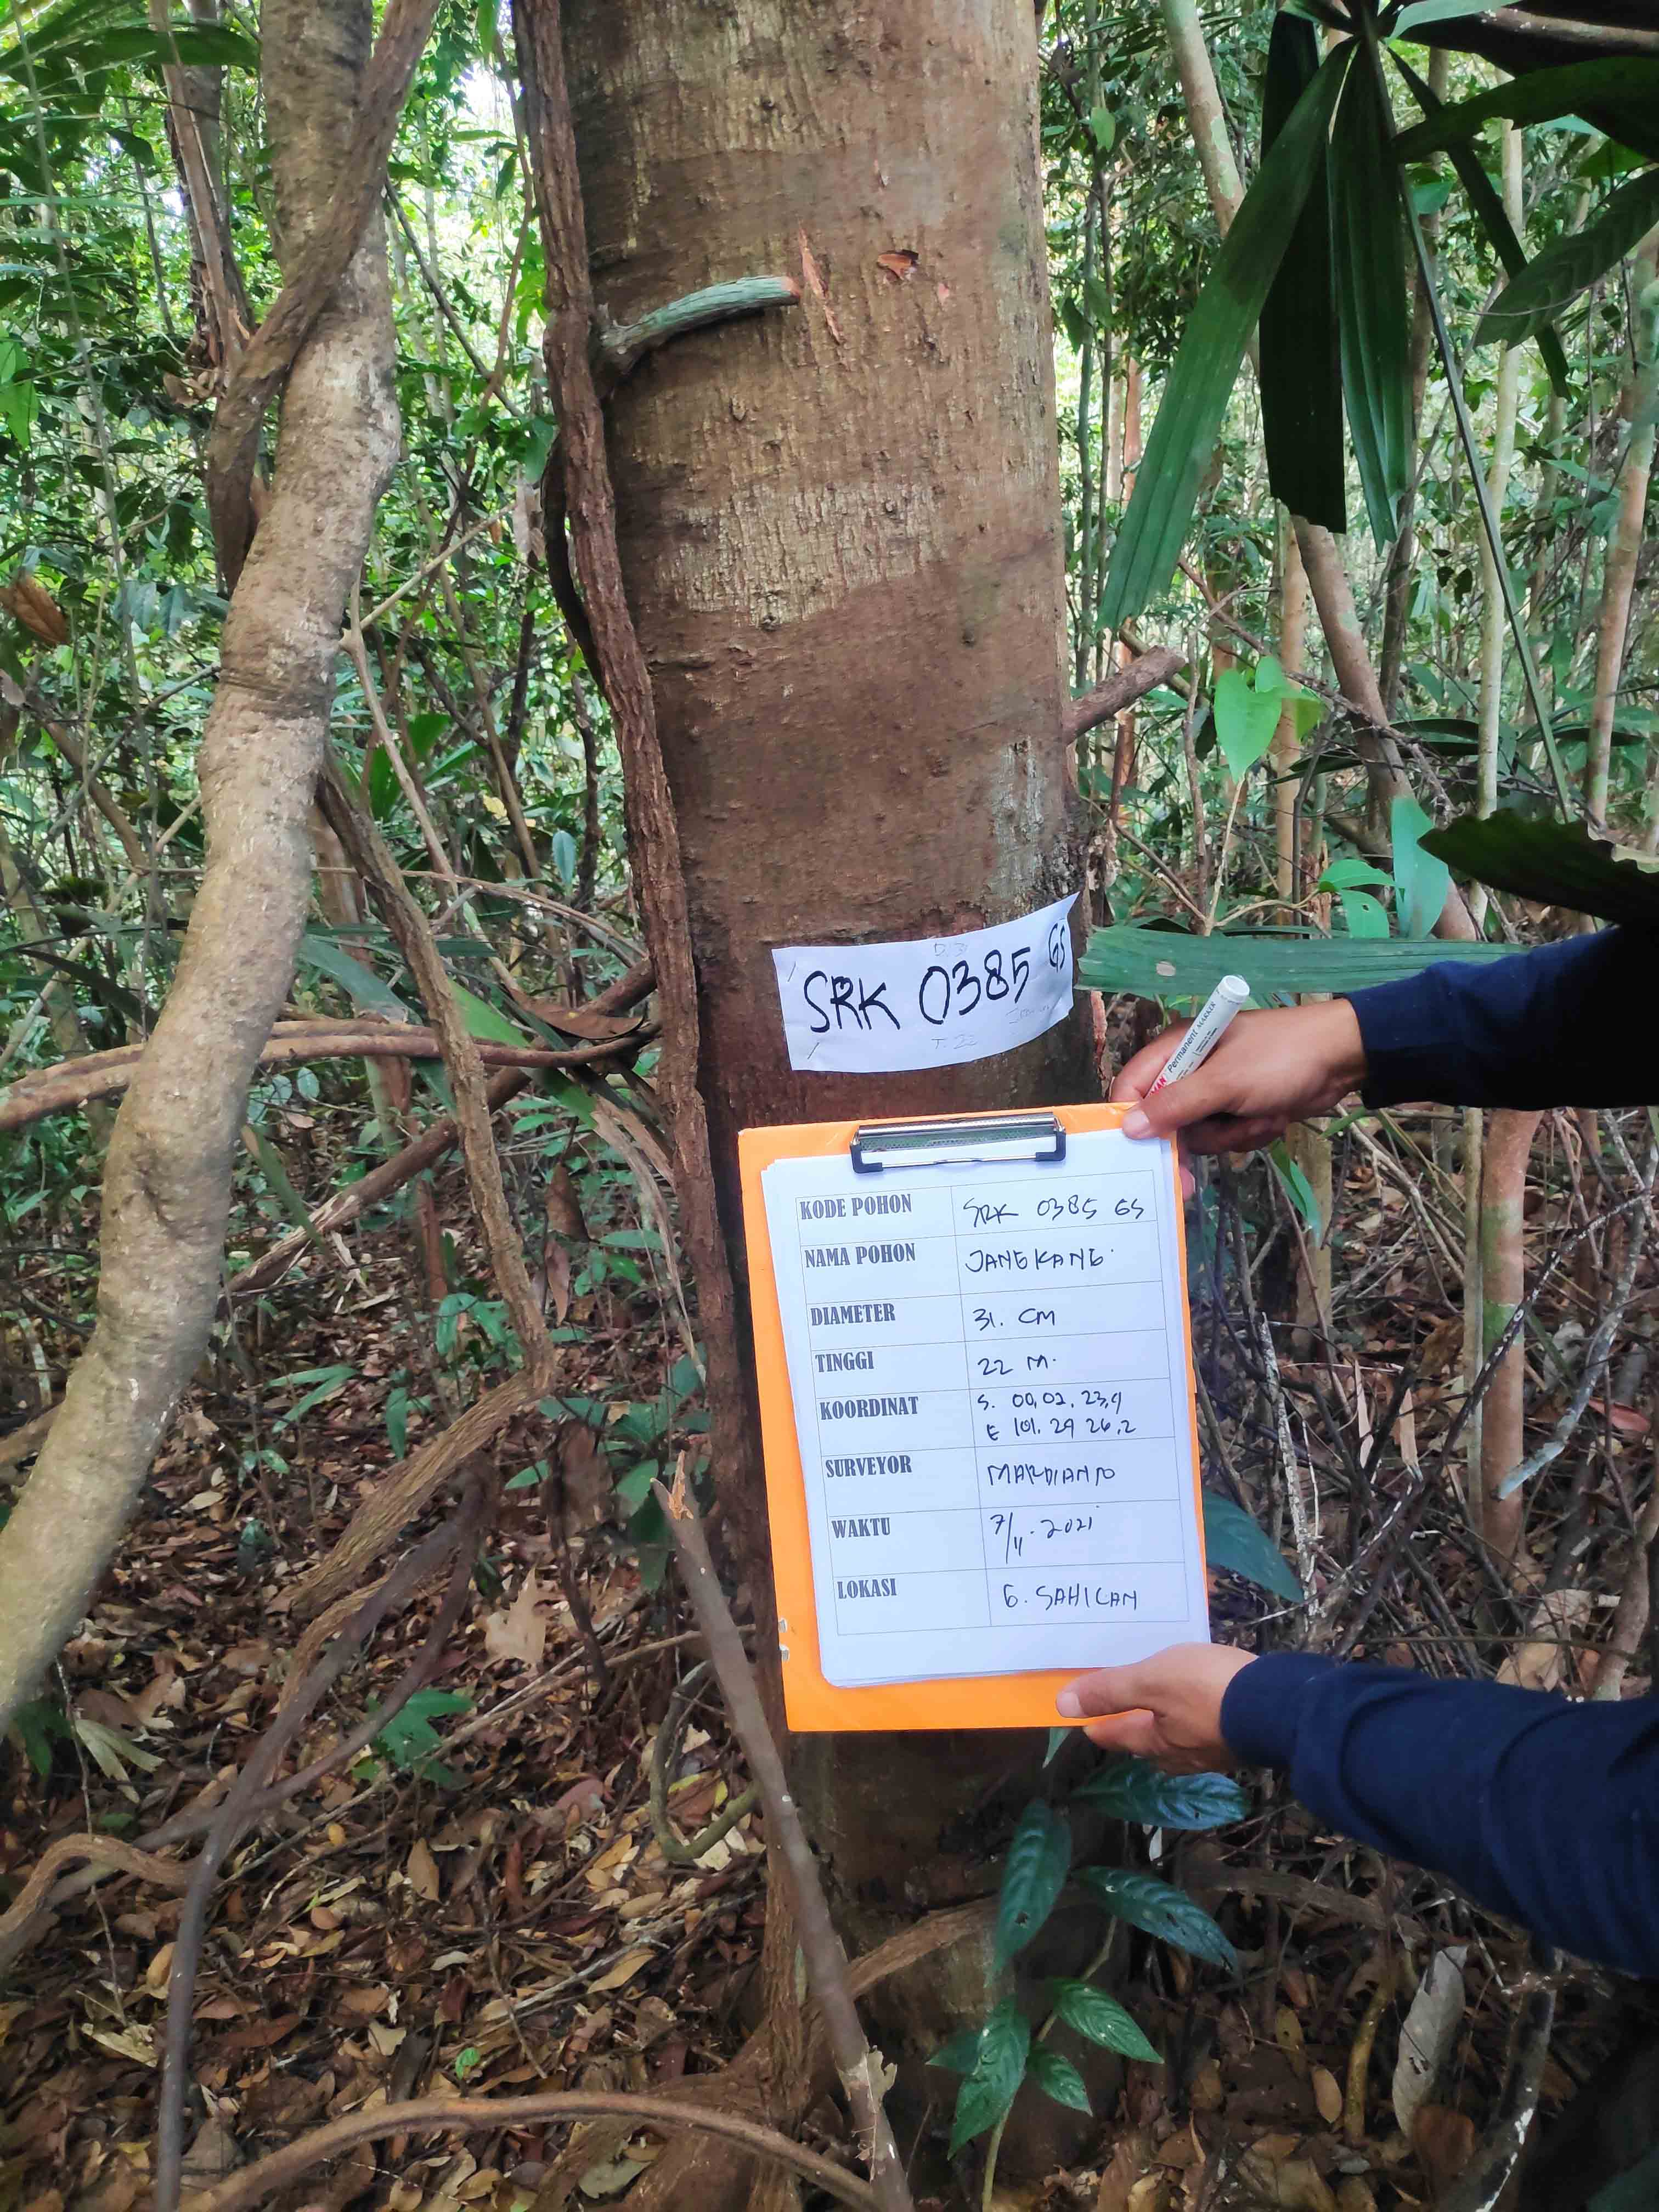 D. 31
SRK 0385 GS
T. 22
Permanent MARKER
KODE POHON SRK 0385 GS
NAMA POHON JANGKANG
DIAMETER 31. CM
TINGGI 22 M.
KOORDINAT S. 00,02, 23,9
E 101. 29 26,2
SURVEYOR MARDIANTO
WAKTU 7/11. 2021
LOKASI G. SAHILAN